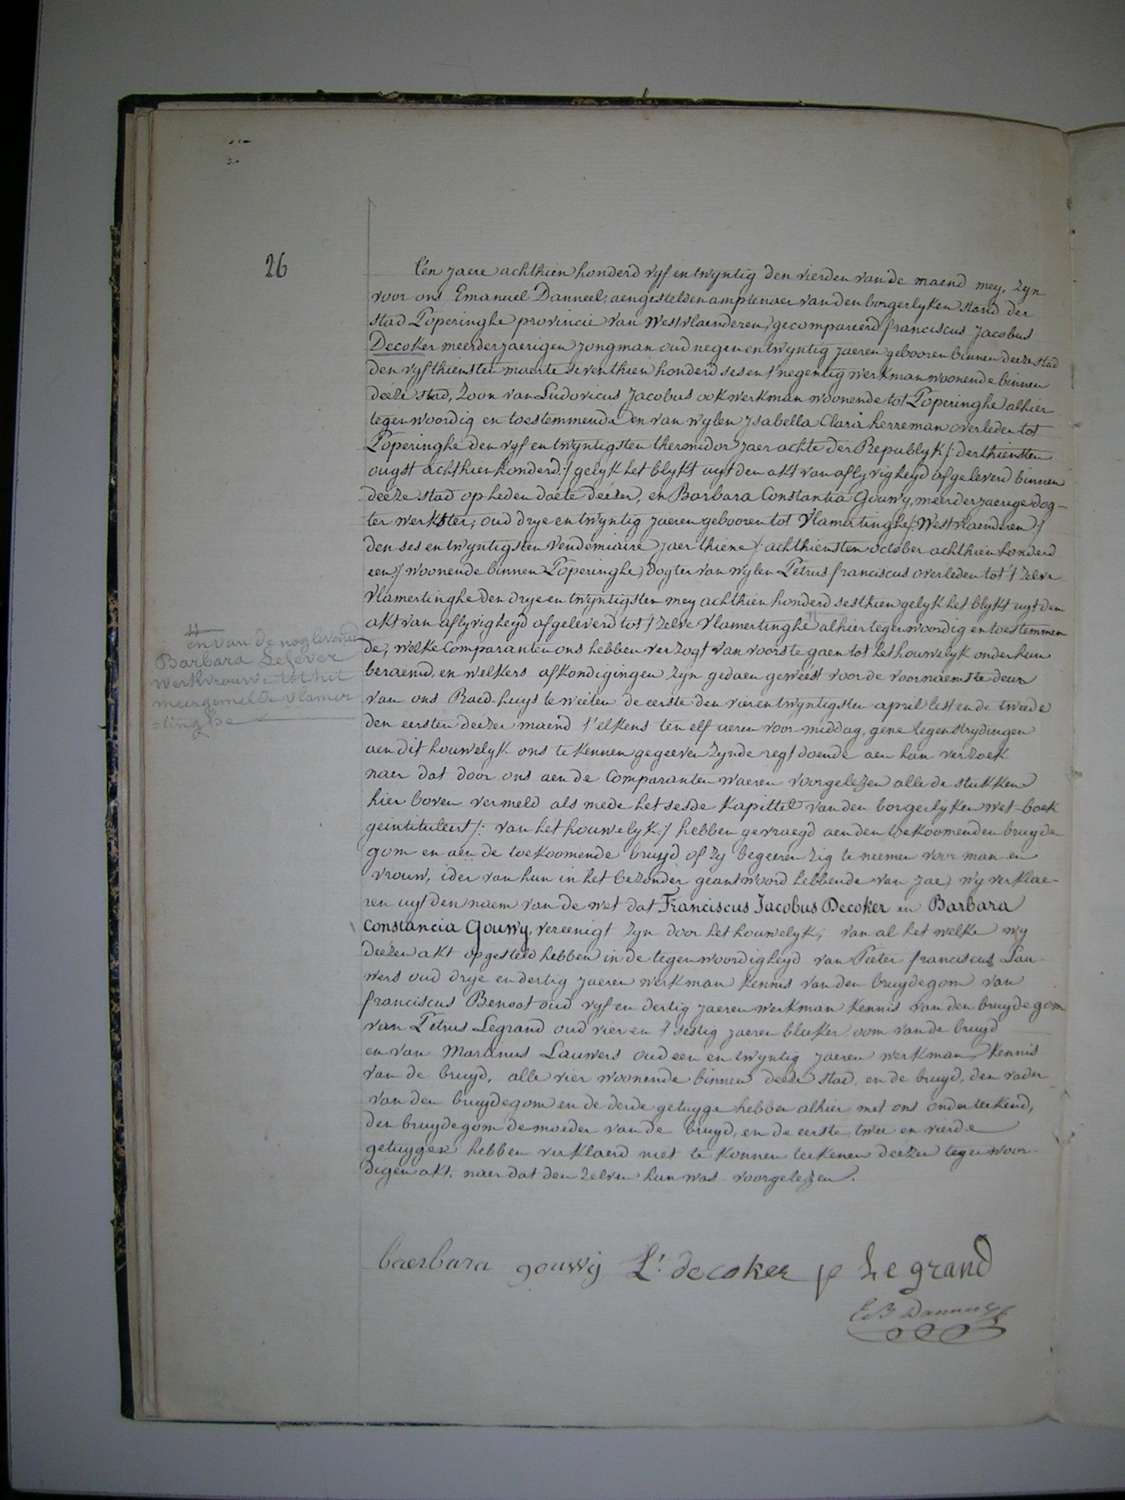 26
Een jaere achthien honderd vyf en twyntig den vierden van de maend mey, zyn
voor ons Emanuel Danneel, aengestelden amptenaer van den borgerlyken stand der
stad Poperinghe provincie van Westvlaenderen, gecompareerd franciscus Jacobus
Decoker meerderjaerigen jongman oud negen en twyntig jaeren gebooren binnen deeze stad
den vyfthiensten maerte seventhien honderd ses en t'negentig werkman woonende binnen
deeze stad, zoon van Ludovicus Jacobus ook werkman woonende tot Poperinghe alhier
tegenwoordig en toestemmende en van wylen Ysabella Clara herreman overleden tot
Poperinghe den vyf en twyntigsten thermidor jaer achte der Republyk /: derthiensten
ougst achthien honderd :/ gelyk het blykt uyt den akt van aflyvigheyd afgeleverd binnen
deeze stad op heden daete deezer, en Barbara Constantia Gouwy, meerderjaerige dog-
ter werkster, oud drye en twyntig jaeren gebooren tot Vlamertinghe /: Westvlaenderen :/
den ses en twyntigsten Vendemiaire jaer thiene /: achthiensten october achthien honderd
een :/ woonende binnen Poperinghe, dogter van wylen Petrus franciscus overleden tot t zelve
Vlamertinghe den drye en twyntigsten mey achthien honderd sesthien gelyk het blykt uyt den
akt van aflyvigheyd afgeleverd tot t zelve Vlamertinghe # alhier tegenwoordig en toestemmen
# en van de nog levende
Barbara Lefever
werkvrouwe tot het
meergemelde Vlamer
-tinghe
de; welke Comparanten ons hebben verzogt van voorste gaen tot het houwelyk onder hun
beraemd, en welkers afkondigingen zyn gedaen geweest voor de voornaemste deur
van ons Raed-huys te weeten de eerste den vier en twyntigsten april lest en de tweede
den eersten deezer maend t'elkens ten elf ueren voor middag, gene tegenstrydingen
aen dit houwelyk ons te kennen gegeeven zynde regt doende aen hun verzoek
naer dat door ons aen de Comparanten waeren voorgelezen alle de stukken
hier boven vermeld als mede het sesde kapittel van den borgerlyken wet-boek
geintituleert /: van het houwelyk :/ hebben gevraegd aen den toekoomenden bruyde
gom en aen de toekoomende bruyd of zy begeeren zig te neemen voor man en
vrouw, ider van hun in het bezonder geantwoord hebbende van jae, wy verklae-
ren uyt den naem van de wet dat Franciscus Jacobus Decoker en Barbara
Constancia Gouwy vereenigt zyn door het houwelyk; van al het welke wy
deezen akt opgesteld hebben in de tegenwoordigheyd van Pieter franciscus Lau-
wers oud drye en dertig jaeren werkman kennis van den bruydegom van
franciscus Benoot oud vyf en dertig jaeren werkman kennis van den bruydegom
van Petrus Legrand oud vier en t sestig jaeren bleker oom van de bruyd
en van Martinus Lauwers oud een en twyntig jaeren werkman, kennis
van de bruyd, alle vier woonende binnen deeze stad, en de bruyd, den vader
van den bruydegom en de derde getuyge hebben alhier met ons onderteekend,
den bruydegom de moeder van de bruyd, en de eerste, twee en vierde
getuygen hebben verklaerd niet te konnen teekenen deezen tegenwoor-
digen akt. naer dat den zelven hun was voorgelezen.
baerbara gouwÿ L: decoker p Legrand
E B Danneel